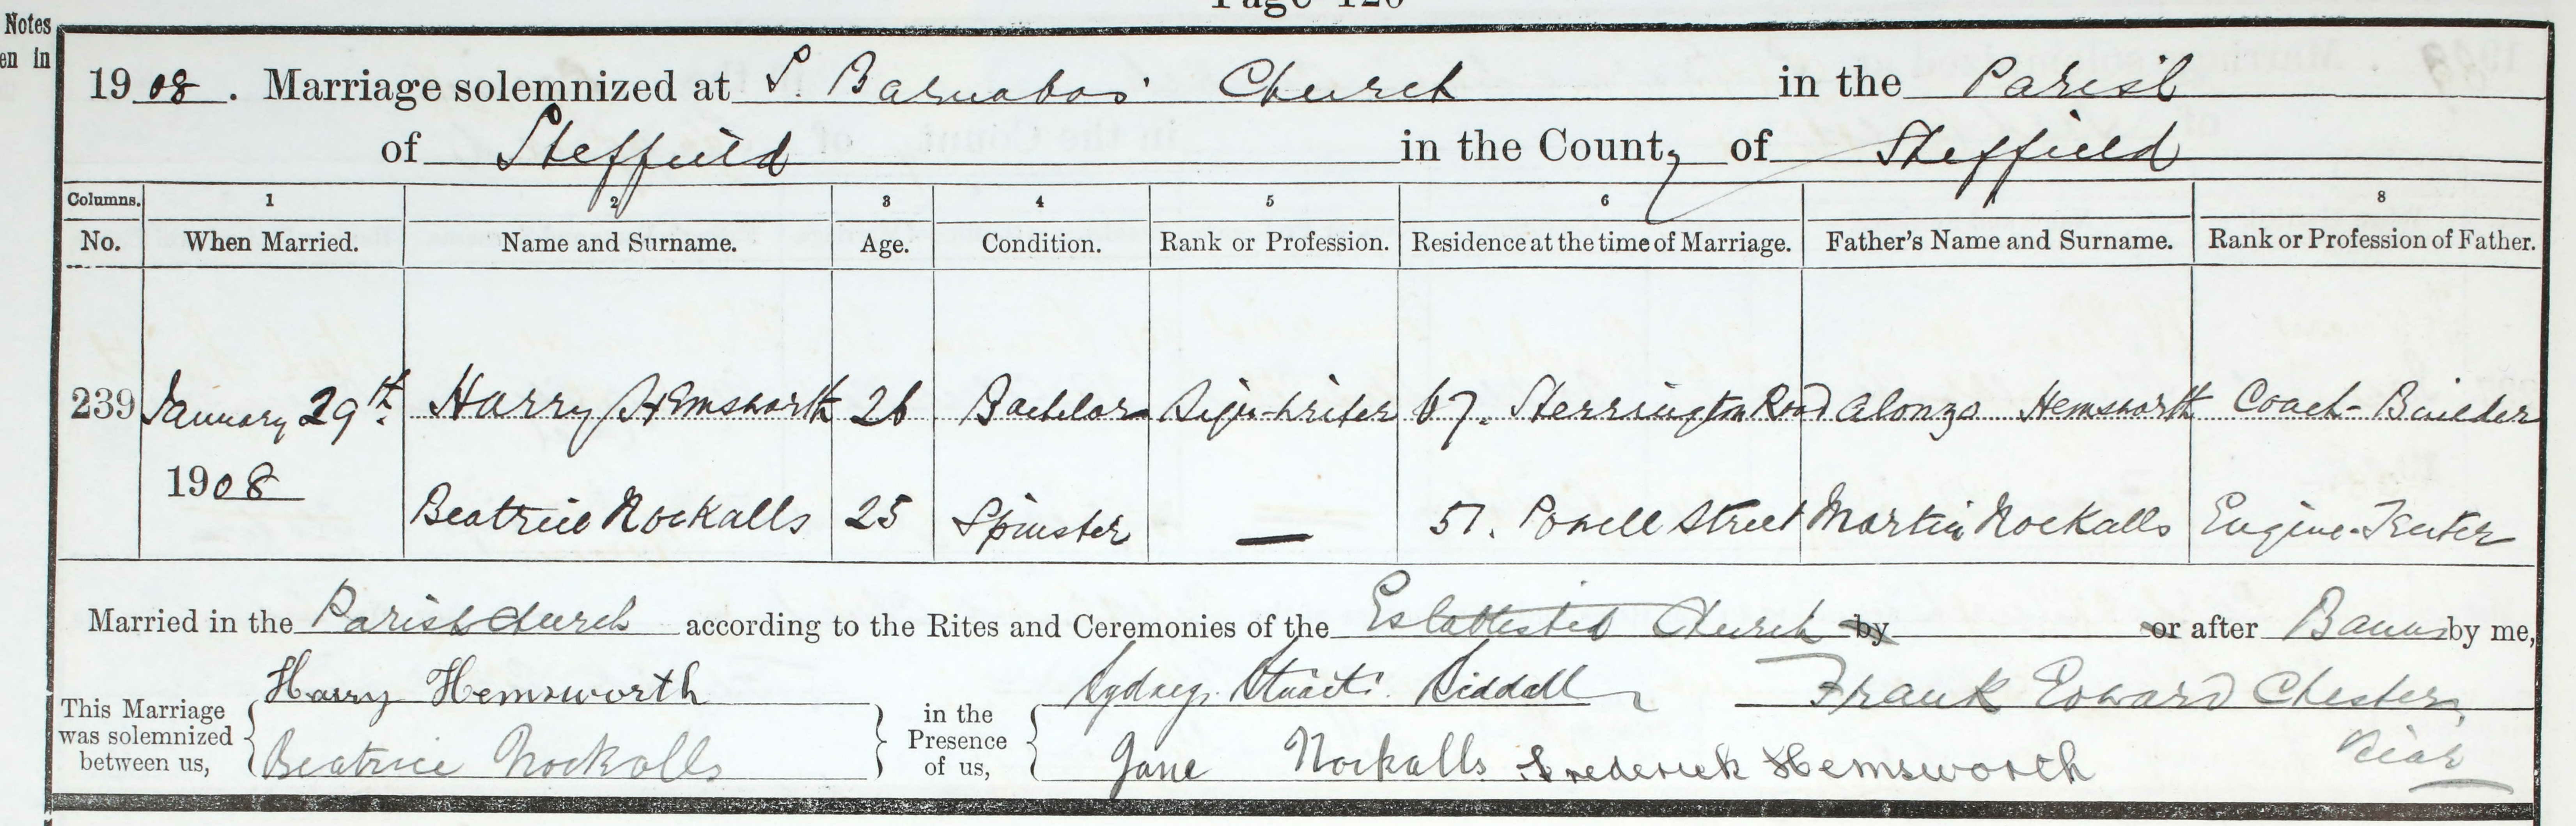 Page 120
Notes
en in
1908. Marriage solemnized at S. Barnabas' Church in the Parish
of Sheffield in the County of Sheffield
Columns. 1 2 3 4 5 6 8
No. When Married. Name and Surname. Age. Condition. Rank or Profession. Residence at the time of Marriage. Father's Name and Surname. Rank or Profession of Father.
239 January 29th. Harry Hemsworth 26 Bachelor Sign-writer 67. Sherrington Road Alonzo Hemsworth Coach-Builder
1908 Beatrice Nockalls 25 Spinster — 57. Powell Street Martin Nockalls Engine-Tenter
Married in the Parish Church according to the Rites and Ceremonies of the Established Church by or after Banns by me,
Harry Hemsworth Sydney Stuart Siddall Frank Edward Chester,
This Marriage was solemnized between us, in the Presence of us,
Beatrice Nockalls Jane Nockalls Frederick Hemsworth Vicar